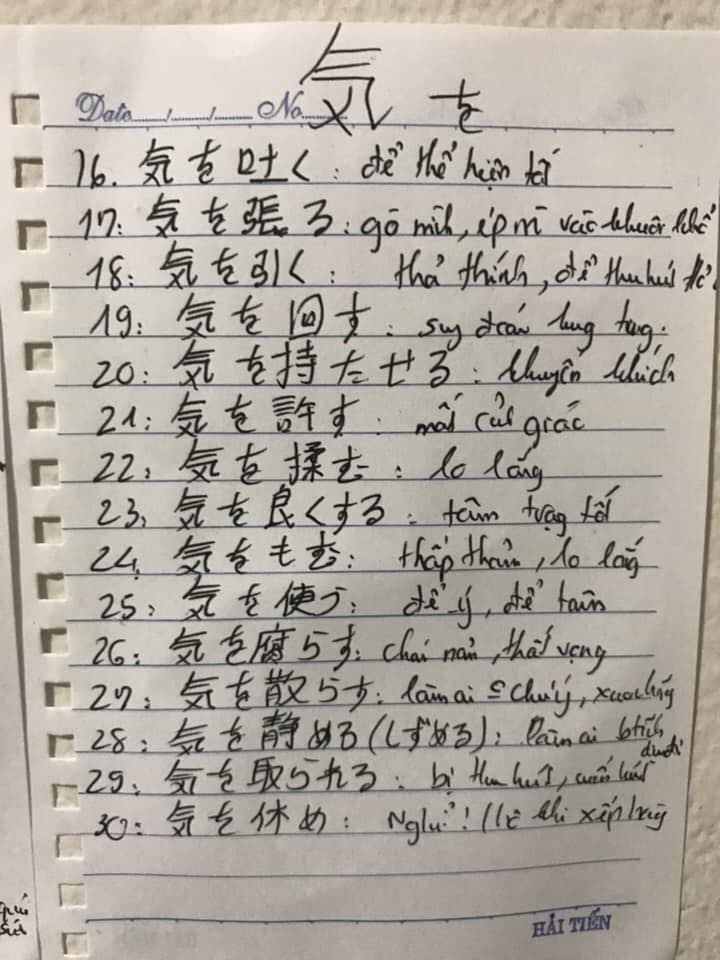 気を
Date....../....../...... No.......
16. 気を吐く : để thể hiện tốt
17: 気を張る : gò mình, ép m vào khuôn khổ
18: 気を引く : thả thính, để thu hút
19: 気を回す : suy đoán lung tung.
20: 気を持たせる : khuyến khích
21: 気を許す : mất cảnh giác
22: 気を揉む : lo lắng
23: 気を良くする : tâm trạng tốt
24: 気をもむ : thấp thỏm, lo lắng
25: 気を使う : để ý, để tâm
26: 気を腐らす : chán nản, thất vọng
27: 気を散らす : làm ai chú ý, xao lãng
28: 気を静める (しずめる) : làm ai btĩnh
29: 気を取られる : bị thu hút, cuốn hút
30: 気を休め : Nghỉ! khi xếp hàng
HẢI TIẾN